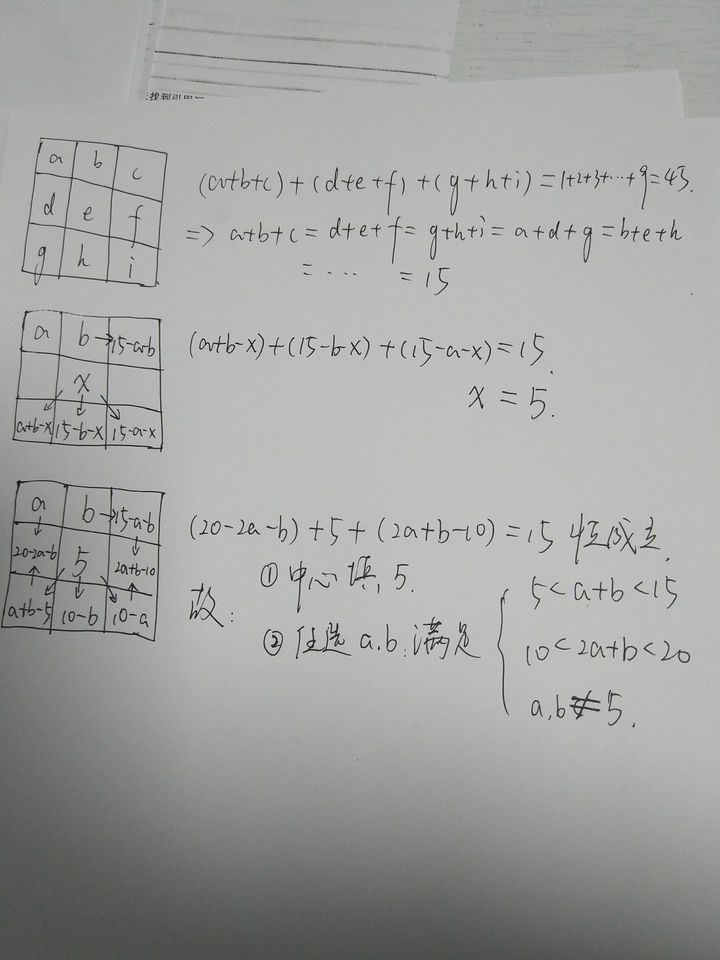 找到引用
a b c
(a+b+c)+(d+e+f)+(g+h+i)=1+2+3+…+9=45.
d e f
=> a+b+c=d+e+f=g+h+i=a+d+g=b+e+h
g h i
=… =15
a b→15-a-b
(a+b-x)+(15-b-x)+(15-a-x)=15.
x
x=5.
a+b-x 15-b-x 15-a-x
a b→15-a-b
(20-2a-b)+5+(2a+b-10)=15 恒成立.
20-2a-b 5 2a+b-10
故:
①中心填5.
a+b-5 10-b 10-a
②任选a.b.满足
5<a+b<15
10<2a+b<20
a.b≠5.